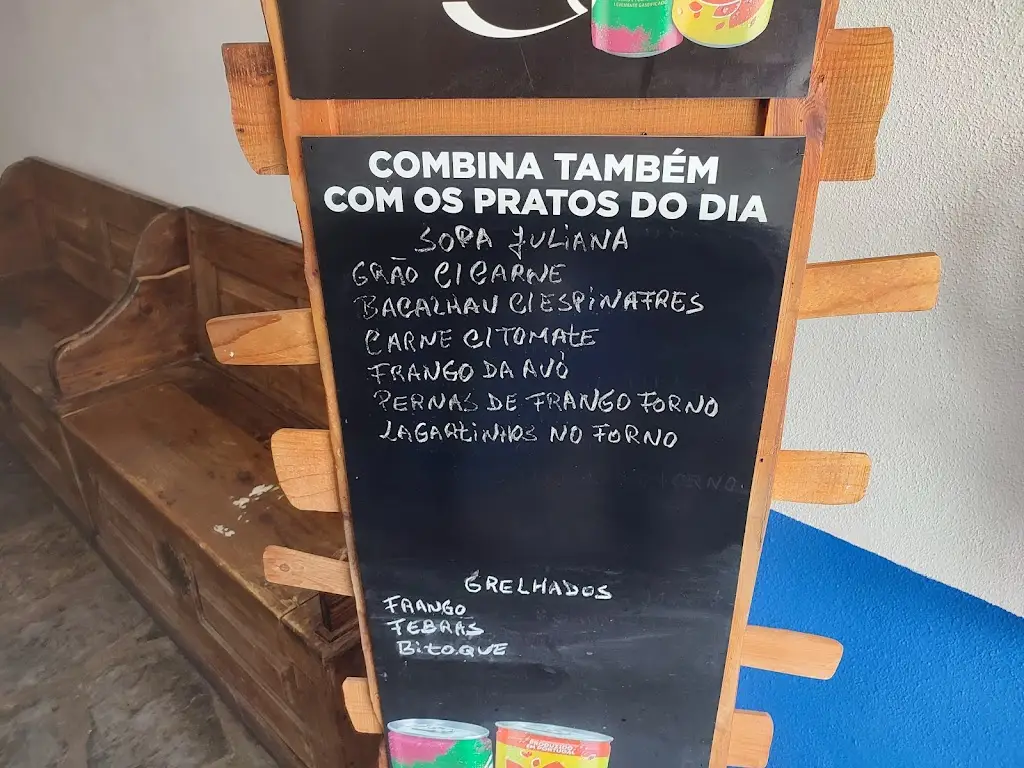 LEVEMENTE GASEIFICADO
COMBINA TAMBÉM
COM OS PRATOS DO DIA
SOPA JULIANA
GRÃO C/ CARNE
BACALHAU C/ ESPINAFRES
CARNE C/ TOMATE
FRANGO DA AVÓ
PERNAS DE FRANGO FORNO
LAGARTINHOS NO FORNO
FORNO
GRELHADOS
FRANGO
FEBRAS
BITOQUE
PRODUZIDO
EM PORTUGAL